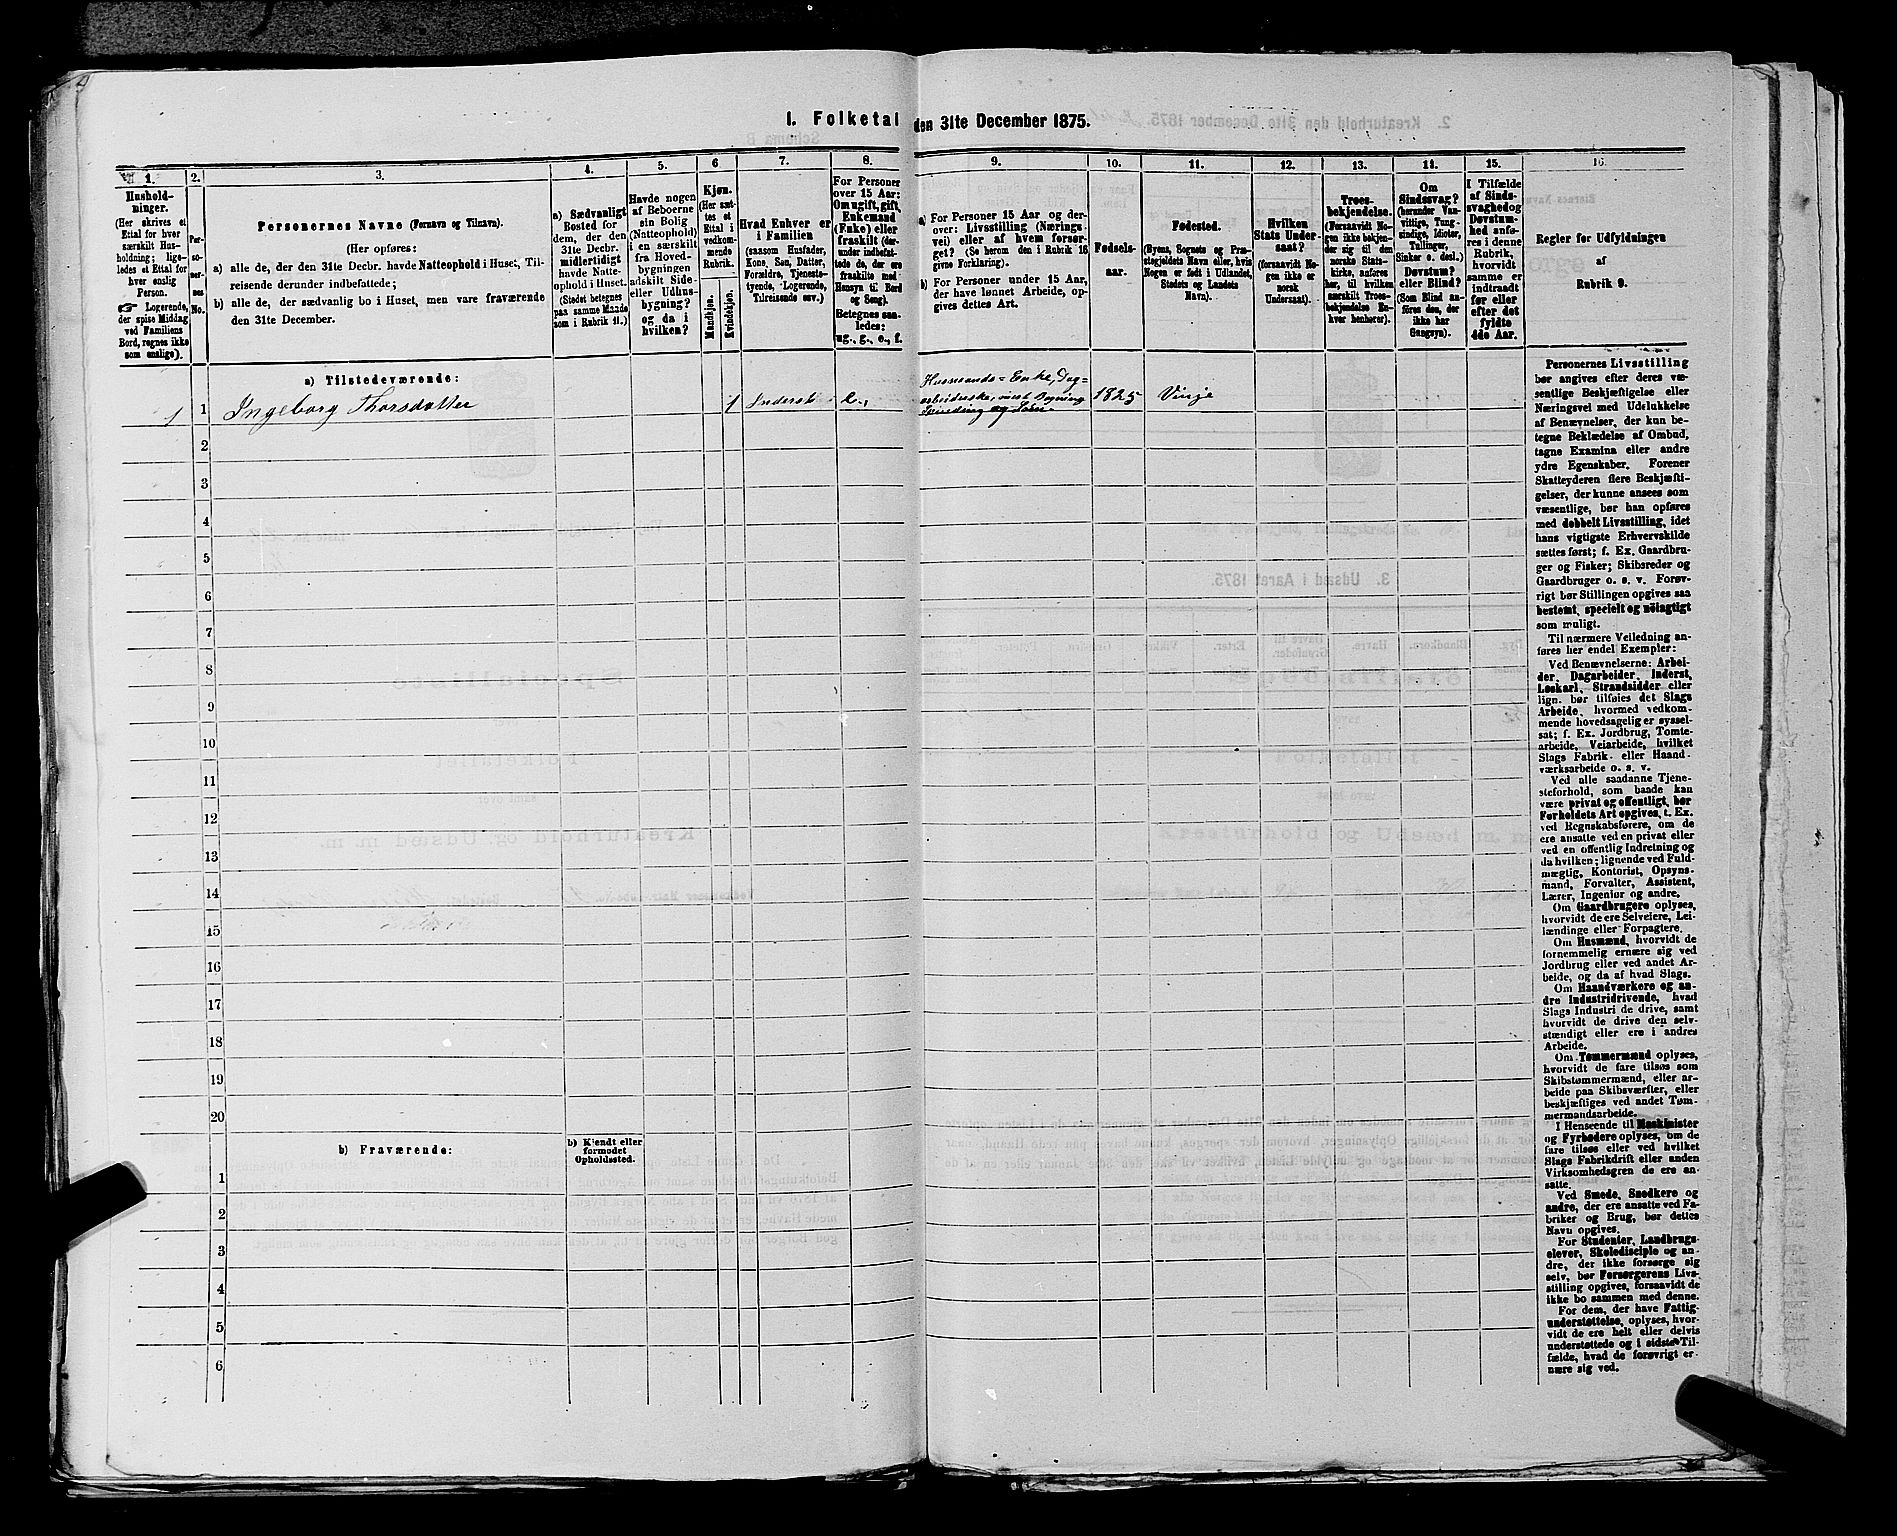 I. Folketal den 31te December 1875.
1.
2.
3.
4.
5.
6
7.
8.
9.
10.
11.
12.
13.
14.
15.
16.
Hushold-
ninger.
(Her skrives et
Ettal for hver
særskilt Hus-
holdning; lige-
ledes et Ettal for
hver enslig
Person.
☞ Logerende,
der spise Middag
ved Familiens
Bord, regnes ikke
som enslige).
Per-
so-
ner-
nes
No.
Personernes Navne (Fornavn og Tilnavn).
(Her opføres:
a) alle de, der den 31te Decbr. havde Natteophold i Huset, Til-
reisende derunder indbefattede;
b) alle de, der sædvanlig bo i Huset, men vare fraværende
den 31te December.
a) Sædvanligt
Bosted for
dem, der den
31te Decbr.
midlertidigt
havde Natte-
ophold i Huset.
(Stedet betegnes
paa samme Maade
som i Rubrik 11.)
Havde nogen
af Beboerne
sin Bolig
(Natteophold)
i en særskilt
fra Hoved-
bygningen
adskilt Side-
eller Udhus-
bygning?
og da i
hvilken?
Kjøn.
(Her sæt-
tes et
Ettal i
vedkom-
mende
Rubrik.
Mandkjøn.
Kvindekjøn.
Hvad Enhver er
i Familien
(saasom Husfader,
Kone, Søn, Datter,
Forældre, Tjeneste-
tyende, Logerende,
Tilreisende osv.)
For Personer
over 15 Aar:
Om ugift, gift,
Enkemand
(Enke) eller
fraskilt (der-
under indbefat-
tede de, der ere
fraskilte med
Hensyn til Bord
og Seng).
Betegnes saa-
ledes:
ug., g., e., f.
a) For Personer 15 Aar og der-
over: Livsstilling (Nærings
vei) eller af hvem forsør-
get? (Se herom den i Rubrik 16
givne Forklaring).
b) For Personer under 15 Aar,
der have lønnet Arbeide, op-
gives dettes Art.
Fødsels-
aar.
Fødested.
(Byens, Sognets og Præ-
stegjeldets Navn eller, hvis
Nogen er født i Udlandet,
Stedets og Landets
Navn).
Hvilken
Stats Under-
saat?
(forsaavidt No-
gen ikke er
norsk
Undersaat).
Troes-
bekjendelse.
(Forsaavidt No-
gen ikke bekjen-
der sig til den
norske Stats-
kirke, anføres
her, til hvilken
særskilt Troes-
bekjendelse En-
hver henhører).
Om
Sindssvag?
(herunder Van-
vittige, Tung-
sindige, Idioter,
Tullinger,
Sinker o. desl.)
Døvstum?
eller Blind?
(Som Blind an-
føres den, der
ikke har
Gangsyn).
I Tilfælde
af Sinds-
svaghed og
Døvstum-
hed anfø-
res i denne
Rubrik,
hvorvidt
samme er
indtraadt
før eller
efter det
fyldte
4de Aar.
Regler for Udfyldningen
af
Rubrik 9.
a) Tilstedeværende:
1 1 Ingeborg Thorsdatter 1 Inderst e., Husmands-Enke, Dag-
arbeiderske, mest Bygning
Spinding og Søm. 1825 Vinje
2
3
4
5
6
7
8
9
10
11
12
13
14
15
16
17
18
19
20
b) Fraværende:
b) Kjendt eller
formodet
Opholdssted.
1
2
3
4
5
6
Personernes Livsstilling
bør angives efter deres væ-
sentlige Beskjæftigelse eller
Næringsvei med Udelukkelse
af Benævnelser, der kun be-
tegne Beklædelse af Ombud,
tagne Examina eller andre
ydre Egenskaber. Forener
Skatteyderen flere Beskjæfti-
gelser, der kunne ansees som
væsentlige, bør han opføres
med dobbelt Livsstilling, idet
hans vigtigste Erhvervskilde
sættes først; f. Ex. Gaardbru-
ger og Fisker; Skibsreder og
Gaardbruger o. s. v. Forøv-
rigt bør Stillingen opgives saa
bestemt, specielt og nöiagtigt
som muligt.
Til nærmere Veiledning an-
føres her endel Exempler:
Ved Benævnelserne: Arbei-
der, Dagarbeider, Inderst,
Løskarl, Strandsidder eller
lign. bør tilføies det Slags
Arbeide, hvormed vedkom-
mende hovedsagelig er syssel-
sat; f. Ex. Jordbrug, Tomte-
arbeide, Veiarbeide, hvilket
Slags Fabrik- eller Haand-
værksarbeide o. s. v.
Ved alle saadanne Tjene-
steforhold, som baade kan
være privat og offentligt, bør
Forholdets Art opgives, t. Ex.
ved Regnskabsførere, om de
ere ansatte ved en privat eller
ved en offentlig Indretning og
da hvilken; lignende ved Fuld-
mægtig, Kontorist, Opsyns-
mand, Forvalter, Assistent,
Lærer, Ingeniør og andre.
Om Gaardbrugere oplyses,
hvorvidt de ere Selveiere, Lei-
lændinge eller Forpagtere.
Om Husmænd, hvorvidt de
fornemmelig ernære sig ved
Jordbrug eller ved andet Ar-
beide, og da af hvad Slags.
Om Haandværkere og an-
dre Industridrivende, hvad
Slags Industri de drive, samt
hvorvidt de drive den selv-
stændigt eller ere i andres
Arbeide.
Om Tømmermænd oplyses,
hvorvidt de fare tilsøs som
Skibstømmermænd, eller ar-
beide paa Skibsværfter, eller
beskjæftiges ved andet Tøm-
mermandsarbeide.
I Henseende til Maskinister
og Fyrbødere oplyses, om de
fare tilsøs eller ved hvilket
Slags Fabrikdrift eller anden
Virksomhedsgren de ere an-
satte.
Ved Smede, Snedkere og
andre, der ere ansatte ved Fa-
briker og Brug, bør dettes
Navn opgives.
For Studenter, Landbrugs-
elever, Skoledisciple og an-
dre, der ikke forsørge sig
selv, bør Forsørgerens Livs-
stilling opgives, forsaavidt de
ikke bo sammen med denne.
For dem, der have Fattig-
understøttelse, oplyses, hvor-
vidt de ere helt eller delvis
understøttede og i sidste Til-
fælde, hvad de forøvrigt er-
nære sig ved.